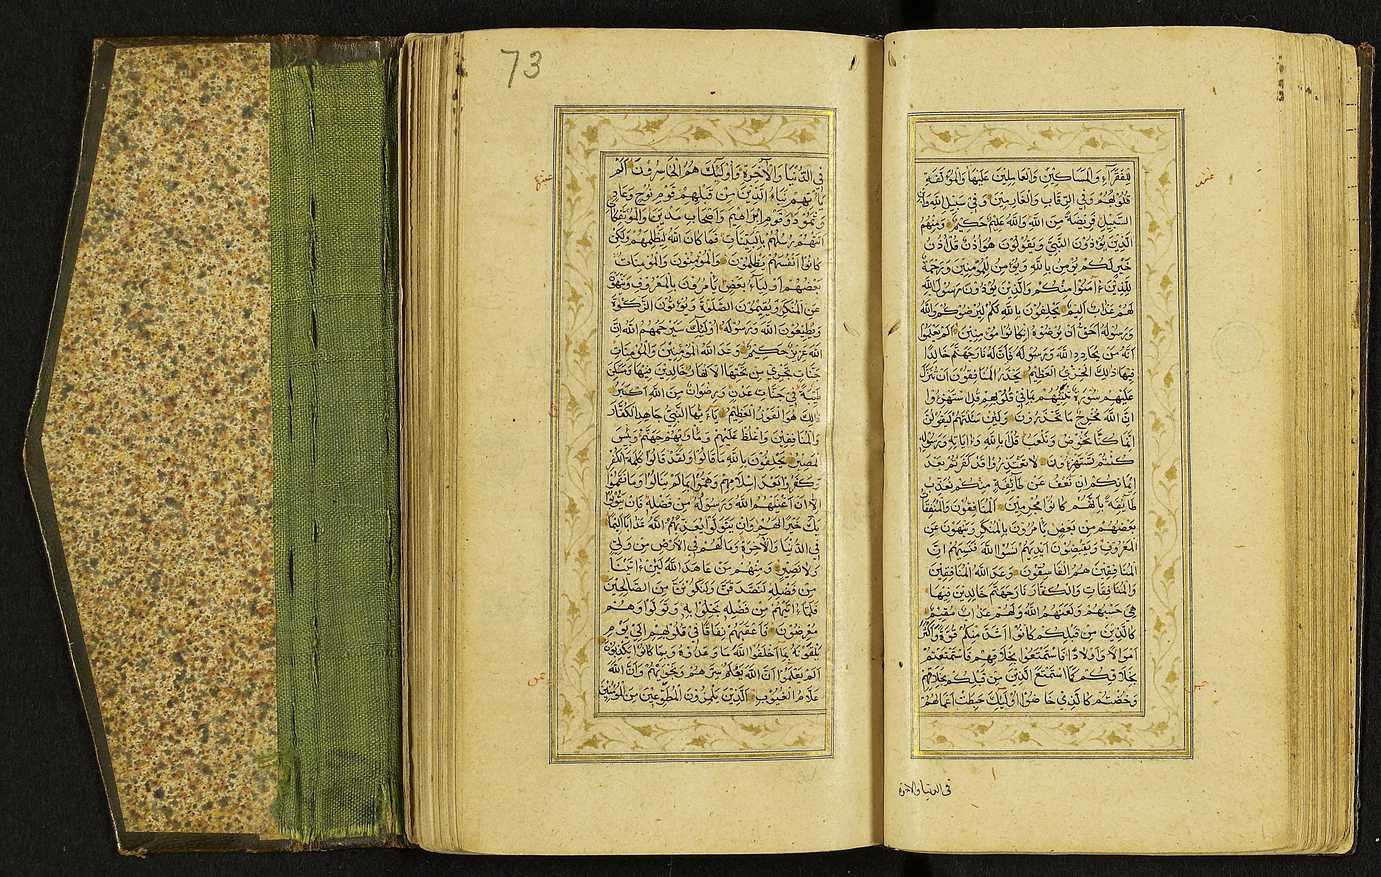 للفقرآء والمساكين والعاملين عليها والمؤلفة
قلوبهم وفي الرقاب والغارمين وفي سبيل الله وابن
السبيل فريضة من الله والله عليم حكيم ومنهم
الذين يؤذون النبي ويقولون هو اذن قل اذن
خير لكم يؤمن بالله ويؤمن للمؤمنين ورحمة
للذين ءامنوا منكم والذين يؤذون رسول الله
لهم عذاب اليم يحلفون بالله لكم ليرضوكم والله
ورسوله احق ان يرضوه ان كانوا مؤمنين الم يعلموا
انه من يحادد الله ورسوله فان له نار جهنم خالدا
فيها ذلك الخزي العظيم يحذر المنافقون ان تنزل
عليهم سورة تنبئهم بما في قلوبهم قل استهزؤا
ان الله مخرج ما تحذرون ولئن سئلتهم ليقولن
انما كنا نخوض ونلعب قل ابالله وءاياته ورسوله
كنتم تستهزؤن لا تعتذروا قد كفرتم بعد
ايمانكم ان نعف عن طآئفة منكم نعذب
طآئفة بانهم كانوا مجرمين المنافقون والمنافقات
بعضهم من بعض يأمرون بالمنكر وينهون عن
المعروف ويقبضون ايديهم نسوا الله فنسيهم ان
المنافقين هم الفاسقون وعد الله المنافقين
والمنافقات والكفار نار جهنم خالدين فيها
هي حسبهم ولعنهم الله ولهم عذاب مقيم
كالذين من قبلكم كانوا اشد منكم قوة واكثر
اموالا واولادا فاستمتعوا بخلاقهم فاستمتعتم
بخلاقكم كما استمتع الذين من قبلكم بخلاقهم
وخضتم كالذي خاضوا اولئك حبطت اعمالهم
في الدنيا والاخرة
73
في الدنيا والآخرة واولئك هم الخاسرون الم
يأتهم نباء الذين من قبلهم قوم نوح وعاد
وثمود وقوم ابراهيم واصحاب مدين والمؤتفكات
اتتهم رسلهم بالبينات فما كان الله ليظلمهم ولكن
كانوا انفسهم يظلمون والمؤمنون والمؤمنات
بعضهم اوليآء بعض يأمرون بالمعروف وينهون
عن المنكر ويقيمون الصلوة ويؤتون الزكوة
ويطيعون الله ورسوله اولئك سيرحمهم الله ان
الله عزيز حكيم وعد الله المؤمنين والمؤمنات
جنات تجري من تحتها الانهار خالدين فيها ومساكن
طيبة في جنات عدن ورضوان من الله اكبر
ذلك هو الفوز العظيم يآءيها النبي جاهد الكفار
والمنافقين واغلظ عليهم ومأويهم جهنم وبئس
المصير يحلفون بالله ما قالوا ولقد قالوا كلمة الكفر
وكفروا بعد اسلامهم وهموا بما لم ينالوا وما نقموا
الا ان اغنيهم الله ورسوله من فضله فان يتوبوا
يك خيرا لهم وان يتولوا يعذبهم الله عذابا اليما
في الدنيا والآخرة وما لهم في الارض من ولي
ولا نصير ومنهم من عاهد الله لئن ءاتينا
من فضله لنصدقن ولنكونن من الصالحين
فلما ءاتيهم من فضله بخلوا به وتولوا وهم
معرضون فاعقبهم نفاقا في قلوبهم الى يوم
يلقونه بما اخلفوا الله ما وعدوه وبما كانوا يكذبون
الم يعلموا ان الله يعلم سرهم ونجويهم وان الله
علام الغيوب الذين يلمزون المطوعين من المؤمنين